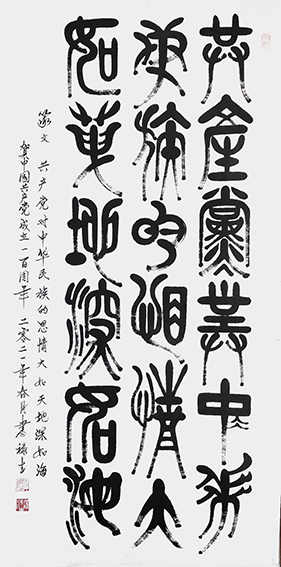 共產黨對中華
民族的恩情大
如天地深如海
篆文 共产党对中华民族的恩情大如天地深如海
贺中国共产党成立一百周年 二零二一年春月书